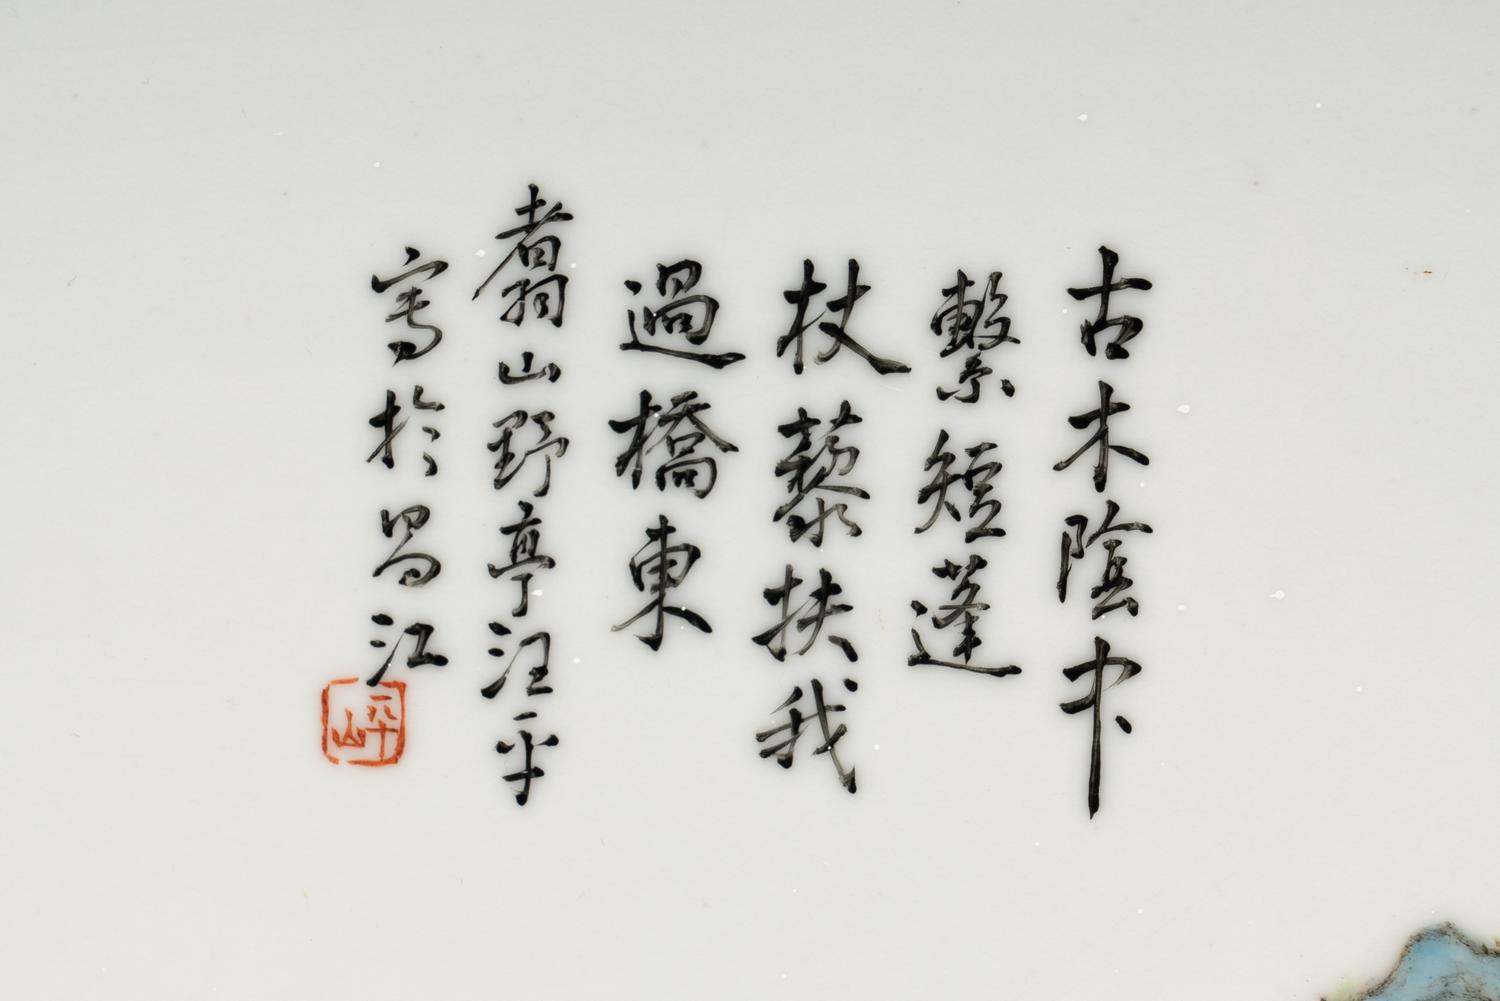 古木陰中
繫短蓬
杖藜扶我
過橋東
翥山野亭汪平
寫於昌江
平山